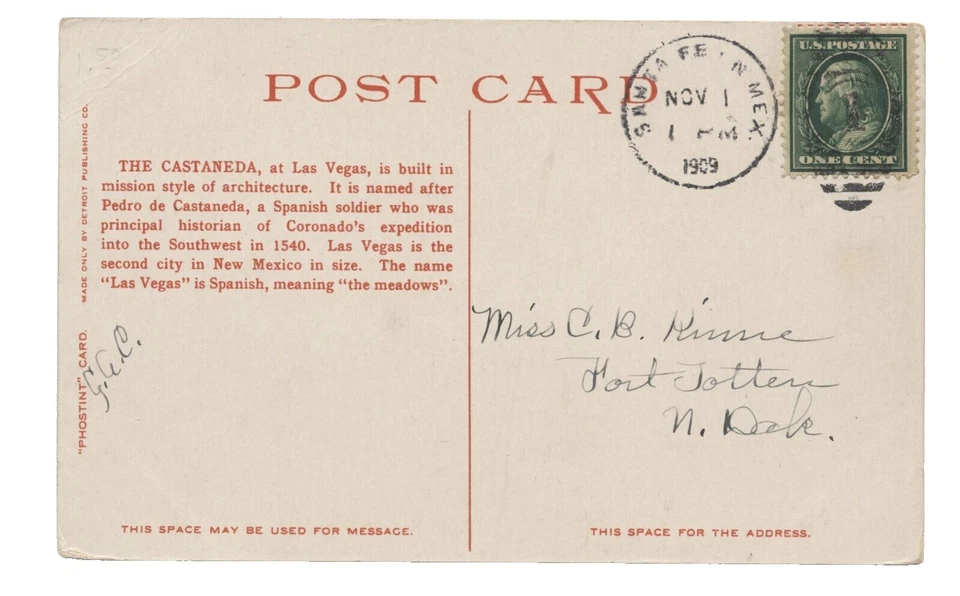 1.50
POST CARD
SANTA FE, N MEX.
NOV 1
1 PM
1909
U.S. POSTAGE
ONE CENT
THE CASTANEDA, at Las Vegas, is built in
mission style of architecture. It is named after
Pedro de Castaneda, a Spanish soldier who was
principal historian of Coronado's expedition
into the Southwest in 1540. Las Vegas is the
second city in New Mexico in size. The name
"Las Vegas" is Spanish, meaning "the meadows".
"PHOSTINT" CARD. MADE ONLY BY DETROIT PUBLISHING CO.
Miss C. B. Kinne
Fort Totten
N. Dak.
THIS SPACE MAY BE USED FOR MESSAGE.
THIS SPACE FOR THE ADDRESS.